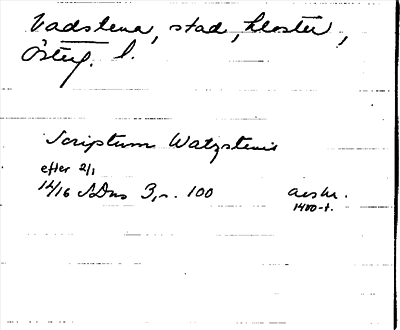 Vadstena, stad, kloster,
Österg. l.
Scriptum Watzstenis
efter 2/1
1416 SDns 3, n. 100 avskr.
1400-t.